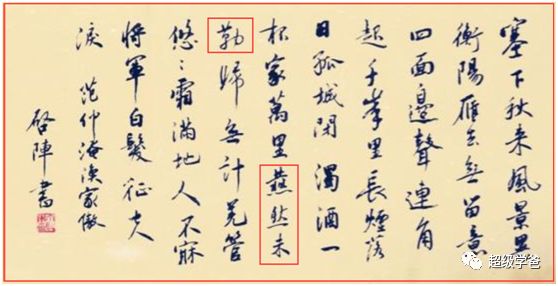 塞下秋来風景異
衡陽雁去無留意
四面邊聲連角
起千峯里長煙落
日孤城閉 濁酒一
杯家萬里燕然未
勒歸無計羌管
悠〻霜滿地人不寐
將軍白髮征夫
淚 范仲淹漁家傲
啓陣書
超级学爸